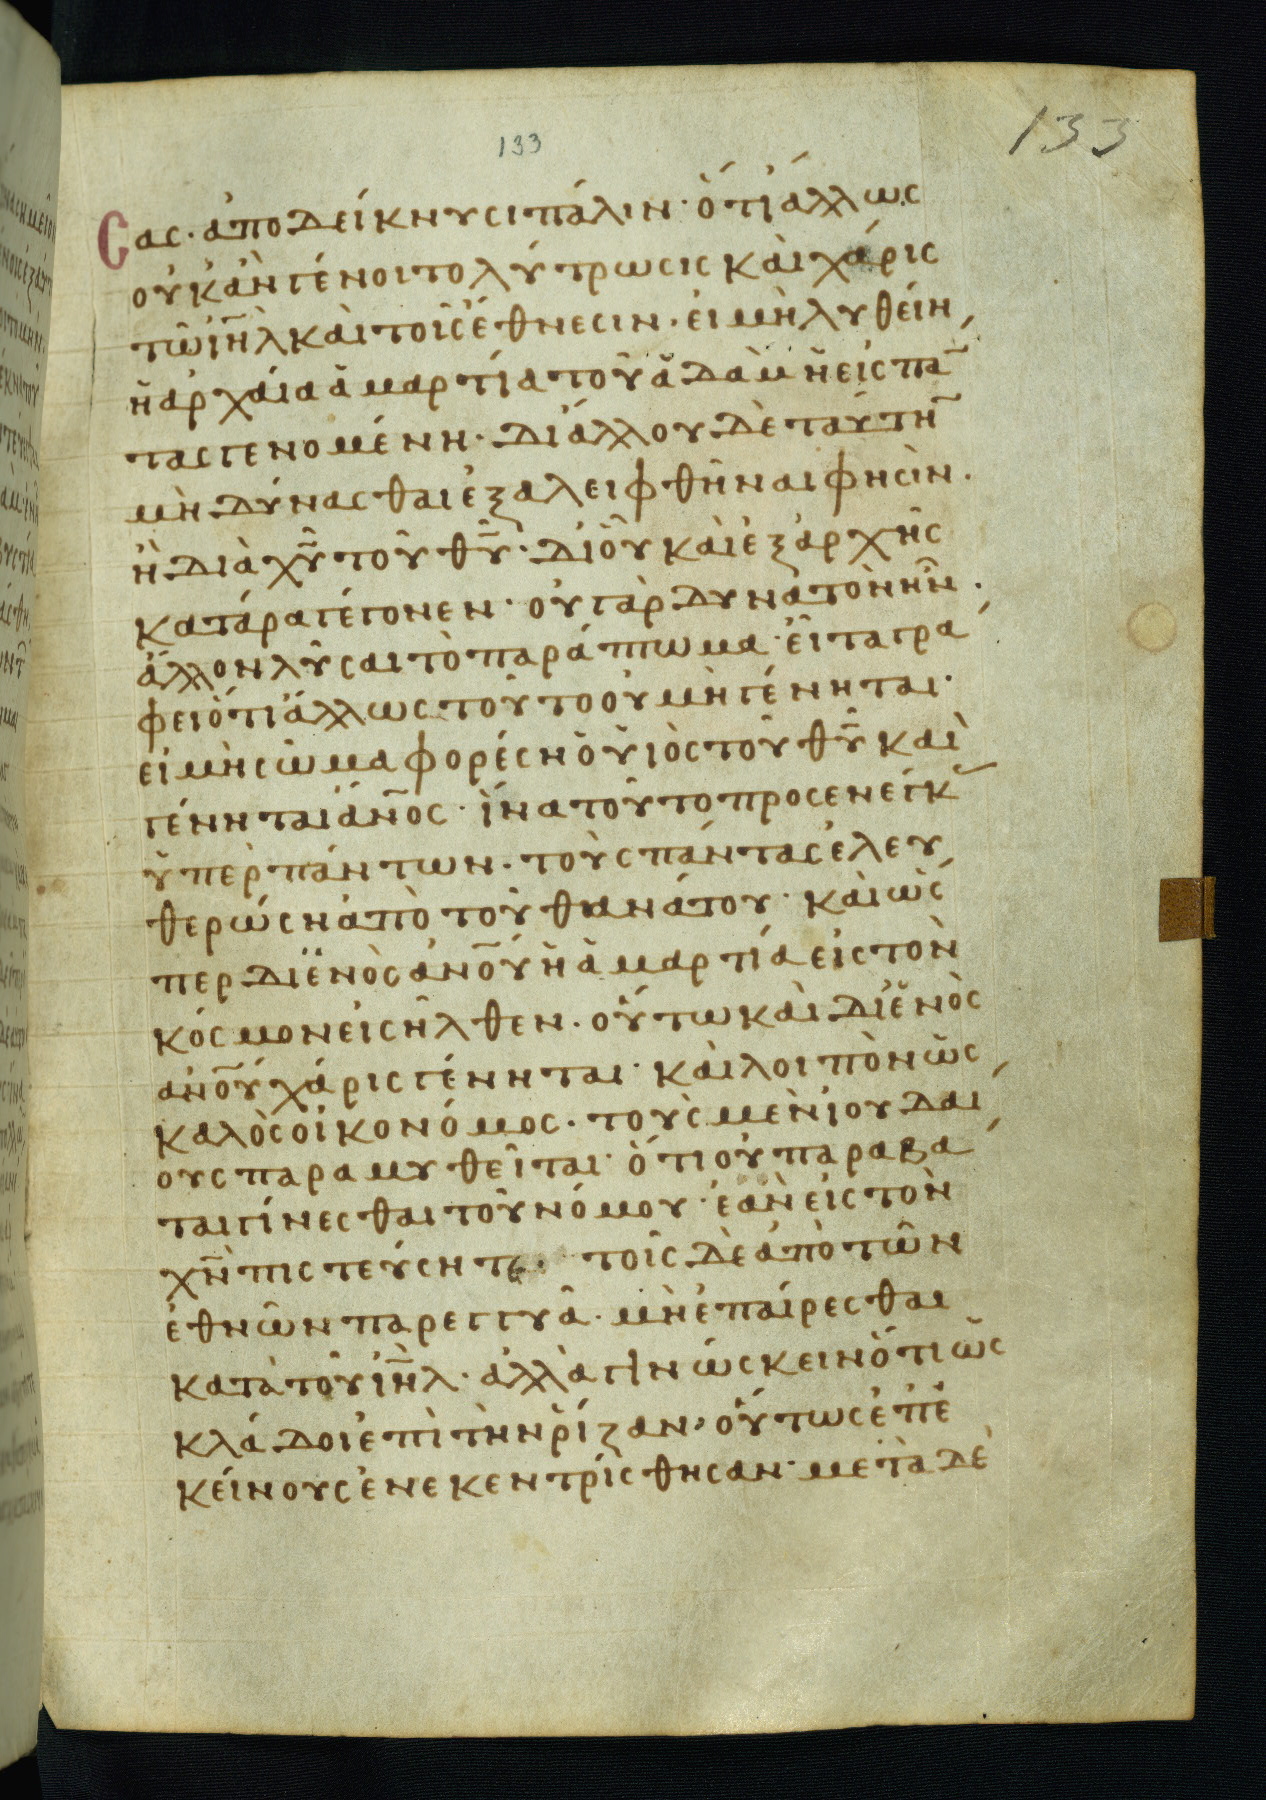 133
133
σας· ἀποδείκνυσι πάλιν· ὅτι ἄλλως
οὐκ ἂν γένοιτο λύτρωσις καὶ χάρις
τῶ ἰη̅λ καὶ τοῖς ἔθνεσιν· εἰ μὴ λυθείη
ἡ ἀρχαία ἁμαρτία τοῦ ἀδὰμ ἡ εἰς πα̅
τας γενομένη· δι ἄλλου δὲ ταύτη̅
μὴ δύνασθαι ἐξαλειφθῆναι φησὶν·
ἢ διὰ χυ̅ τοῦ θυ̅· δι οὗ καὶ ἐξ ἀρχῆς
κατάρα γέγονεν· οὐ γὰρ δυνατὸν ἦν·
ἄλλον λῦσαι τὸ παράπτωμα· εἶτα γρά
φει ὅτι ἄλλως τοῦτο οὐ μὴ γένηται·
εἰ μὴ σῶμα φορέση ὁ υἱὸς τοῦ θυ̅ καὶ
γένηται ἄνο̅ς· ἵνα τοῦτο προσενέγκ
ὑπὲρ πάντων· τοὺς πάντας ἐλευ
θερώση ἀπὸ τοῦ θανάτου· καὶ ὥς
περ δι ἑνὸς ἀνο̅υ ἡ ἁμαρτία εἰς τὸν
κόσμον εἰσῆλθεν· οὕτω καὶ δι ἑνὸς
ἀνο̅υ χάρις γένηται· καὶ λοιπὸν ὡς
καλὸς οἰκονόμος· τοὺς μὲν ἰουδαί
ους παραμυθεῖται· ὅτι οὐ παραβά
ται γίνεσθαι τοῦ νόμου· ἐὰν εἰς τὸν
χν̅ πιστεύσητε· τοῖς δὲ ἀπὸ τῶν
ἐθνῶν παρεγγυᾶ· μὴ ἐπαίρεσθαι
κατὰ τοῦ ἰη̅λ· ἀλλὰ γινώσκειν ὅτι ὡς
κλάδοι ἐπὶ τὴν ῥίζαν, οὕτως ἐπ ἐ
κείνους ἐνεκεντρίσθησαν· μετὰ δὲ